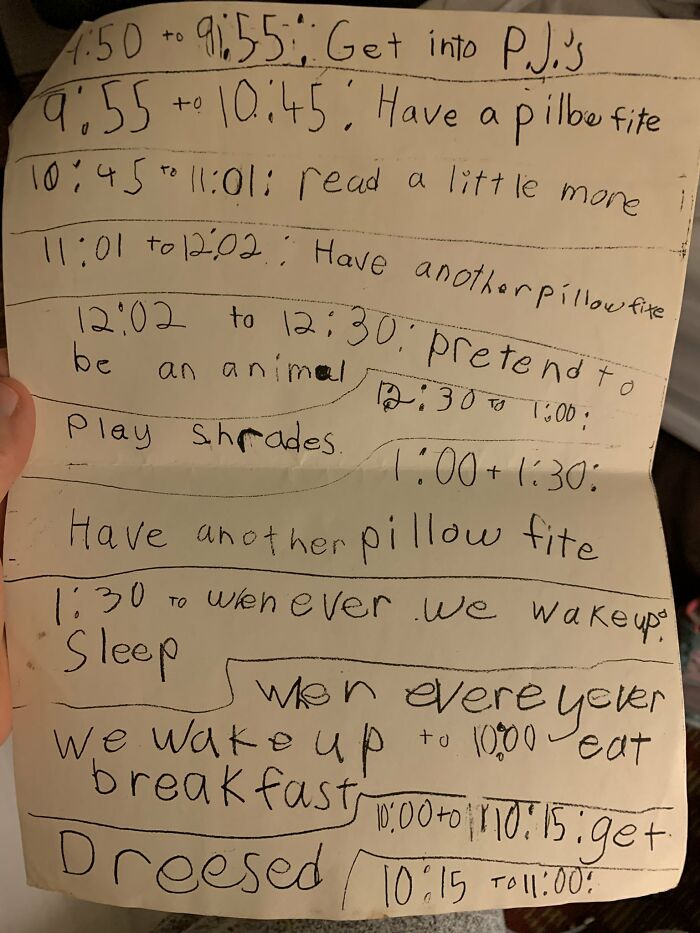 :50 to 9:55: Get into P.J.'s
9:55 to 10:45: Have a pilbw fite
10:45 to 11:01: read a little more
11:01 to 12:02: Have another pillow fite
12:02 to 12:30: pretend to
be an animal
12:30 to 1:00:
Play shrades.
1:00 + 1:30:
Have another pillow fite
1:30 to when ever we wake up:
Sleep
when evereyever
we wake up to 10:00 eat
breakfast
10:00 to 10:15: get
Dreesed
10:15 to 11:00: